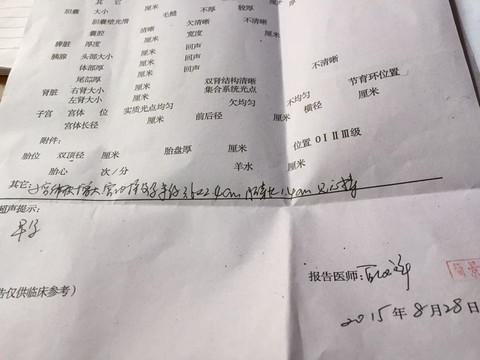 其它 厘米
胆囊 大小 毛糙 不厚 较厚
胆囊壁光滑 厘米 欠清晰 不清晰
囊腔 清晰 宽度 厘米
脾脏 厚度 厘米 回声
胰腺 头部大小 厘米 回声
体部厚 厘米 回声
尾部厚 厘米 双肾结构清晰 不清晰
肾脏 右肾大小 厘米 集合系统光点
左肾大小 厘米 欠均匀 不均匀 节育环位置
子宫 宫体 位 实质光点均匀 前后径 横径 厘米
宫体长径 厘米 厘米
附件:
胎位 双顶径 厘米 胎盘厚 厘米 位置 0 I II III级
胎心 次/分 羊水 厘米
其它
超声提示:
早孕
报告医师:
告仅供临床参考)
2015年8月28日